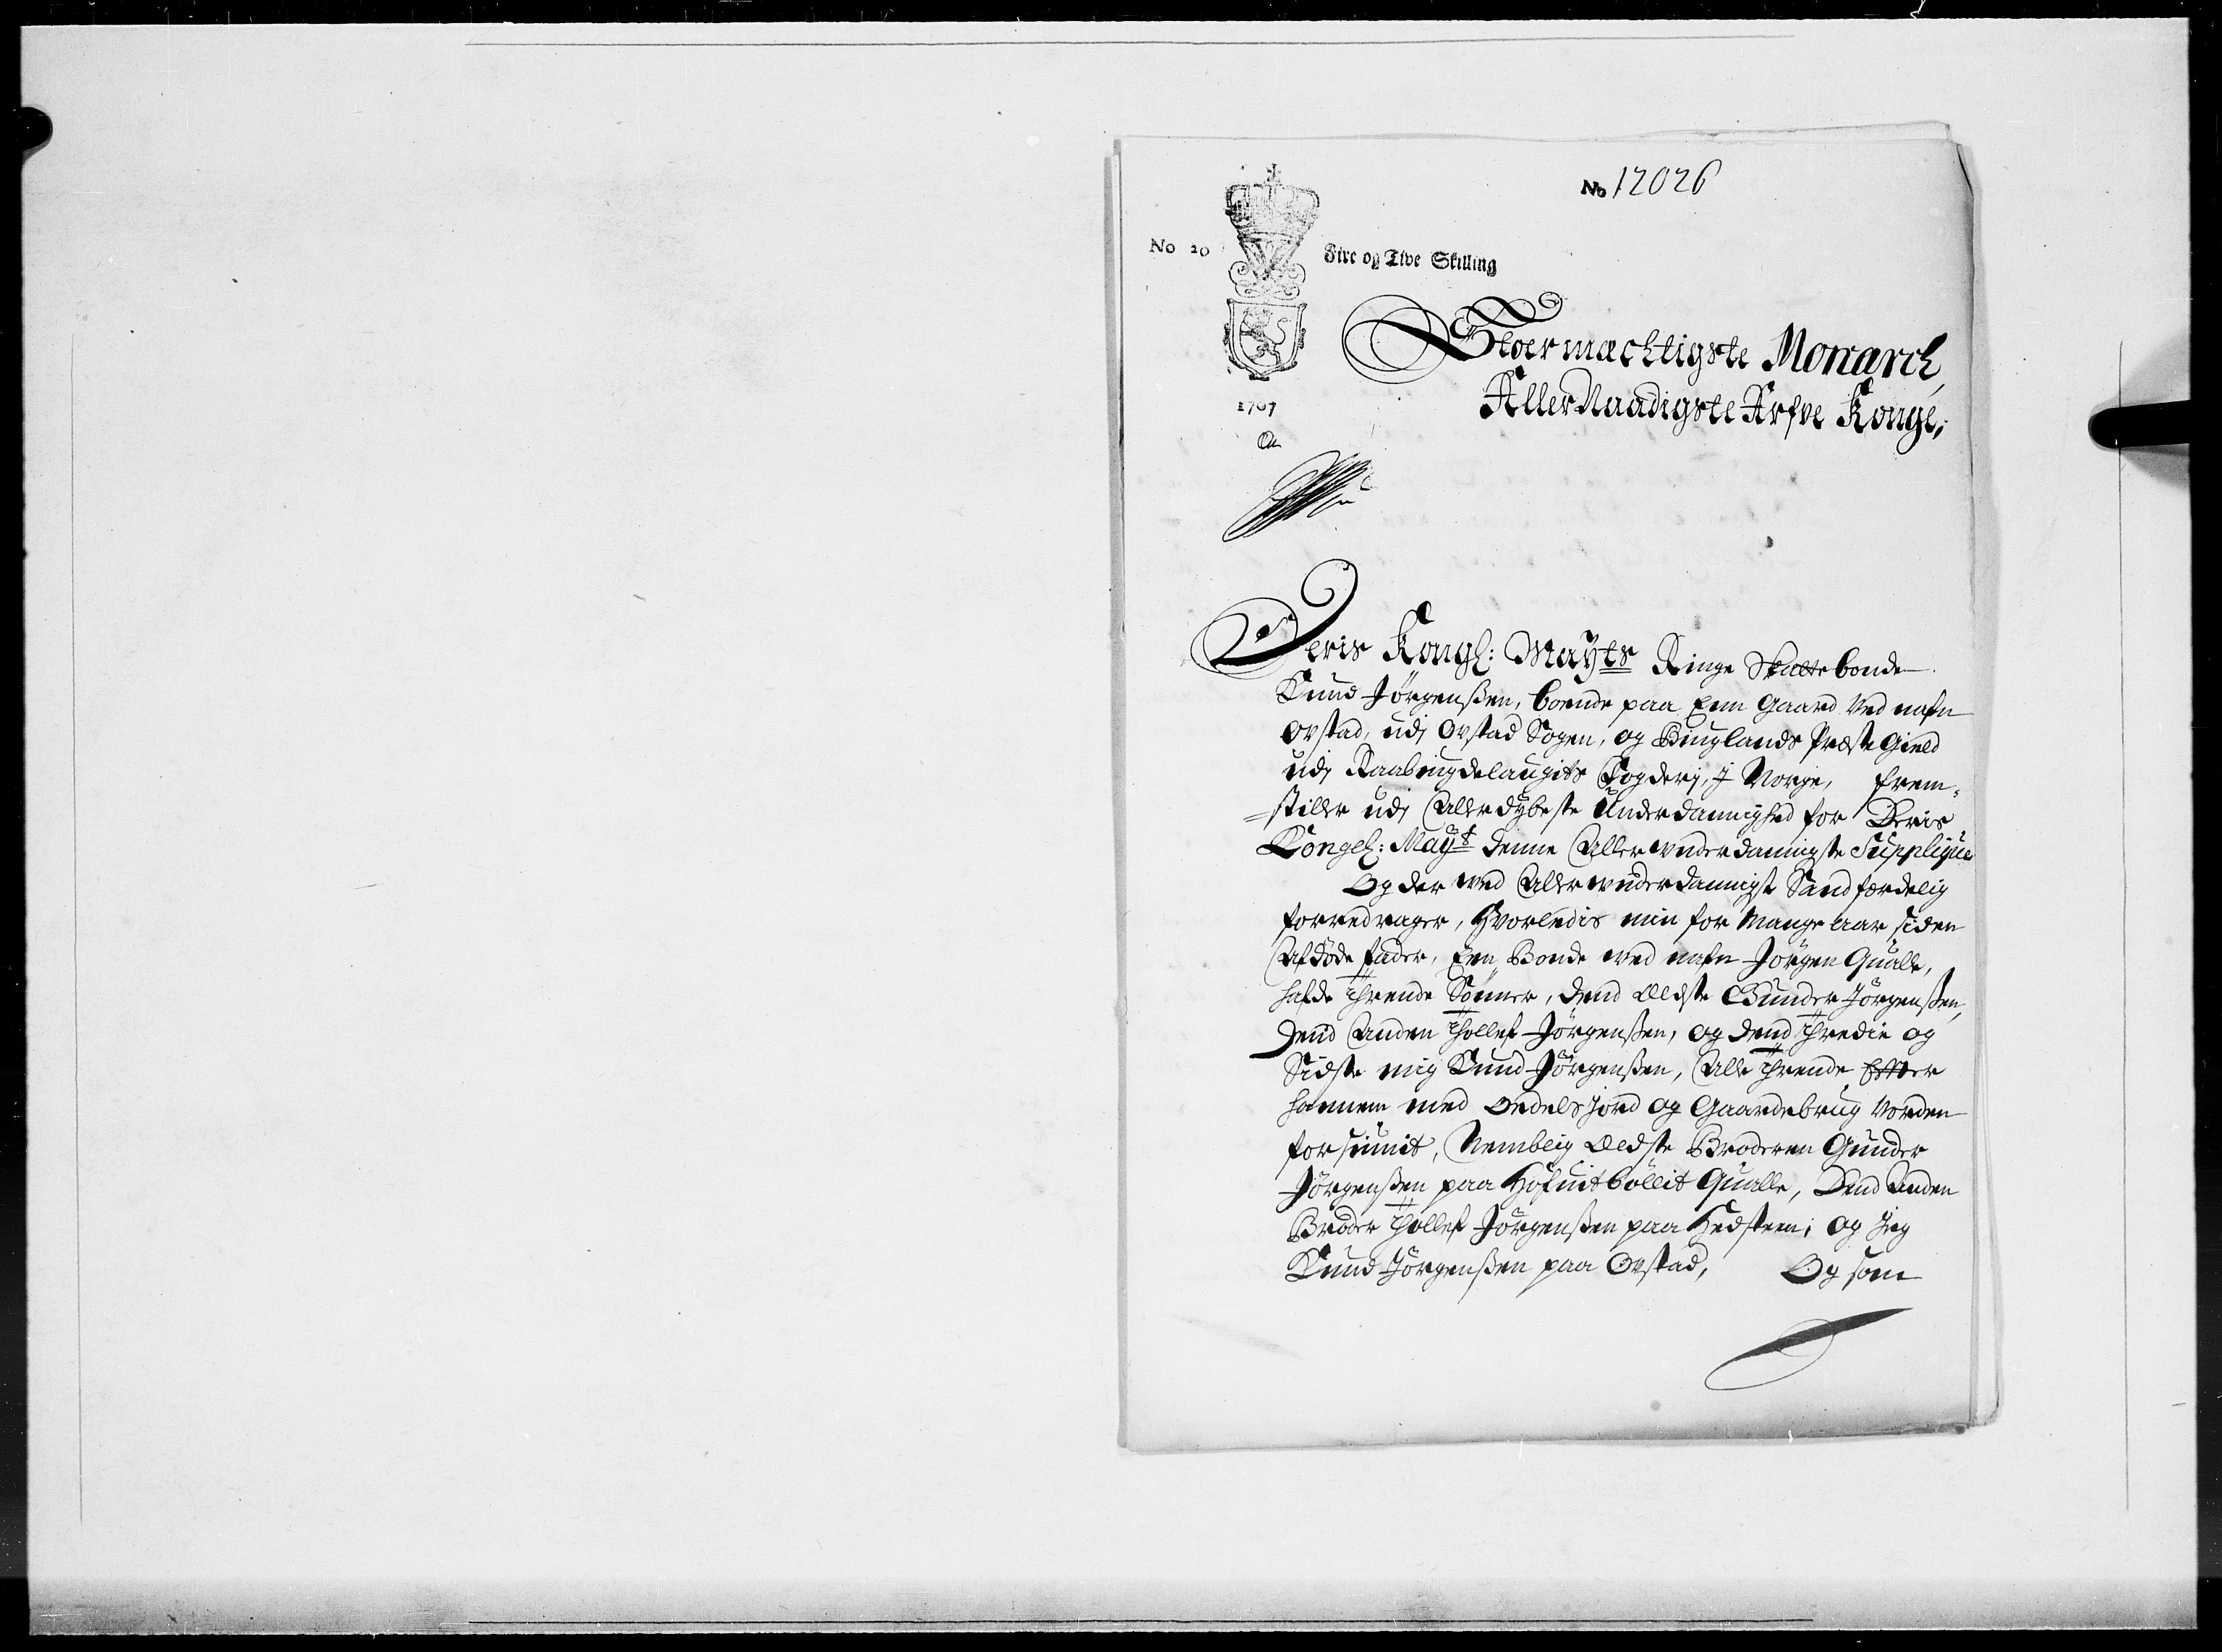 No 12026
No 20
Fire og Tive Skilling
1707
Stoermæchtigste Monarch,
AllerNaadigste Arfve Konge,
Deris Kongl: Mayts Ringe Skatte bonde
Knud Jörgenßen, boende paa Een Gaard Ved nafn
Ovstad, udj Ovstad Sogen, og Biuglands Præste Gield
udj Raabÿgdelaugits Fogderj, J Norge, frem-
=stiller udj Allerdÿbeste Underdannighed for Deris
Kongel: Mayt denne Allerunderdannigste Supplique
Og der ved Allerunderdannigst Sandfærdelig
forredrager, Hvorledis min for Mange aar siden
Afdöde fader, Een Bonde ved nafn Jörgen Qualle,
hafde Thrende Sönner, dend Eldste Gunder Jörgenßen,
Dend Anden Thollef Jörgenßen, og dend Thredie og
Sidste mig Knud Jörgenßen, Alle Thrende Efter
hannem med Oedels Jord og Gaardebrug Vorden
forsiunit, Nemblig Eldste Broderen Gunder
Jörgenßen paa Hofuitböllit Qualle, Dend Anden
Broder Thollef Jörgenßen paa Hedsteen; og Jeg
Knud Jörgenßen paa Ovstad, Og som